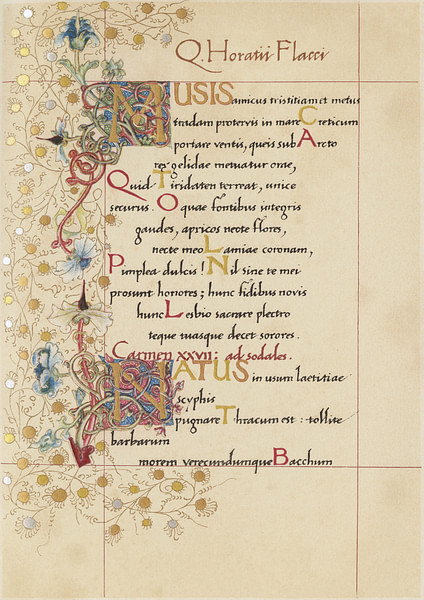 Q. Horatii Flacci
MUSIS amicus tristitiam et metus
tradam protervis in mare Creticum
portare ventis, queis sub Arcto
rex gelidae metuatur orae,
Quid Tiridaten terreat, unice
securus. O quae fontibus integris
gaudes, apricos necte flores,
necte meo Lamiae coronam,
Pimplea dulcis! Nil sine te mei
prosunt honores; hunc fidibus novis
hunc Lesbio sacrare plectro
teque tuasque decet sorores.
Carmen xxvii: ad sodales.
NATUS in usum laetitiae
scyphis
pugnare Thracum est: tollite
barbarum
morem verecundumque Bacchum